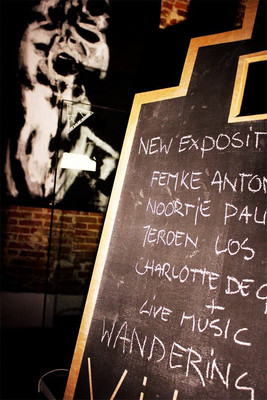 NEW EXPOSIT
FEMKE ANTON
NOORTJE PAU
JEROEN LOS
CHARLOTTE DE G
+
LIVE MUSIC
WANDERING